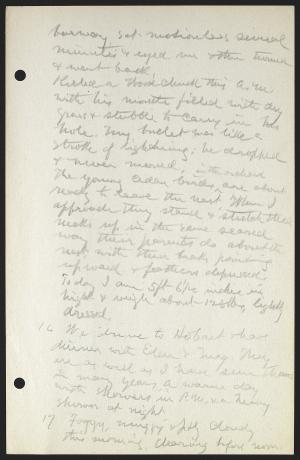 barway sat motionless several
minutes & eyed me & then turned
& went back.
Killed a Wood chuck this A.M.
with his mouth filled with dry
grass & stubble to carry in his
hole. My bullet was like a
stroke of lightning; he dropped
& never moved; in the orchard
the young cedar-birds, are about
ready to leave the nest. When I
approach they stand & stretch their
necks up in the same scared
way their parents do above the
nest with their beaks pointing
upward & feathers depressed.
Today I am 5ft 6½ inches in
hight & weigh about 128 lbs, lightly
dressed.
16 We drive to Hobart & have
dinner with Eden & Mag. They
are as well as I have seen them
in many years, a warm day
with showers in P.M. & a heavy
shower at night.
17 Foggy, muggy & Cloudy
this morning, clearing before noon.